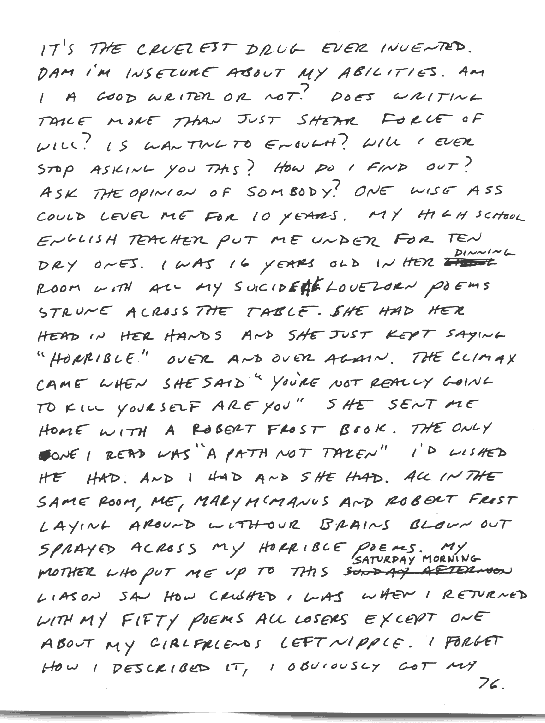 IT'S THE CRUELEST DRUG EVER INVENTED.
DAM I'M INSECURE ABOUT MY ABILITIES. AM
I A GOOD WRITER OR NOT? DOES WRITING
TAKE MORE THAN JUST SHEAR FORCE OF
WILL? IS WANTING TO ENOUGH? WILL I EVER
STOP ASKING YOU THIS? HOW DO I FIND OUT?
ASK THE OPINION OF SOMBODY? ONE WISE ASS
COULD LEVEL ME FOR 10 YEARS. MY HIGH SCHOOL
ENGLISH TEACHER PUT ME UNDER FOR TEN
DRY ONES. I WAS 16 YEARS OLD IN HER DINNING
ROOM WITH ALL MY SUICIDE LOVELORN POEMS
STRUNE ACROSS THE TABLE. SHE HAD HER
HEAD IN HER HANDS AND SHE JUST KEPT SAYING
"HORRIBLE" OVER AND OVER AGAIN. THE CLIMAX
CAME WHEN SHE SAID "YOU'RE NOT REALLY GOING
TO KILL YOURSELF ARE YOU" SHE SENT ME
HOME WITH A ROBERT FROST BOOK. THE ONLY
ONE I READ WAS "A PATH NOT TAKEN" I'D WISHED
HE HAD. AND I HAD AND SHE HAD. ALL IN THE
SAME ROOM, ME, MARY MCMANUS AND ROBERT FROST
LAYING AROUND WITH OUR BRAINS BLOWN OUT
SPRAYED ACROSS MY HORRIBLE POEMS. MY
MOTHER WHO PUT ME UP TO THIS SATURDAY MORNING SUNDAY AFTERNOON
LIASON SAW HOW CRUSHED I WAS WHEN I RETURNED
WITH MY FIFTY POEMS ALL LOSERS EXCEPT ONE
ABOUT MY GIRLFRIENDS LEFT NIPPLE. I FORGET
HOW I DESCRIBED IT, I OBVIOUSLY GOT MY
76.